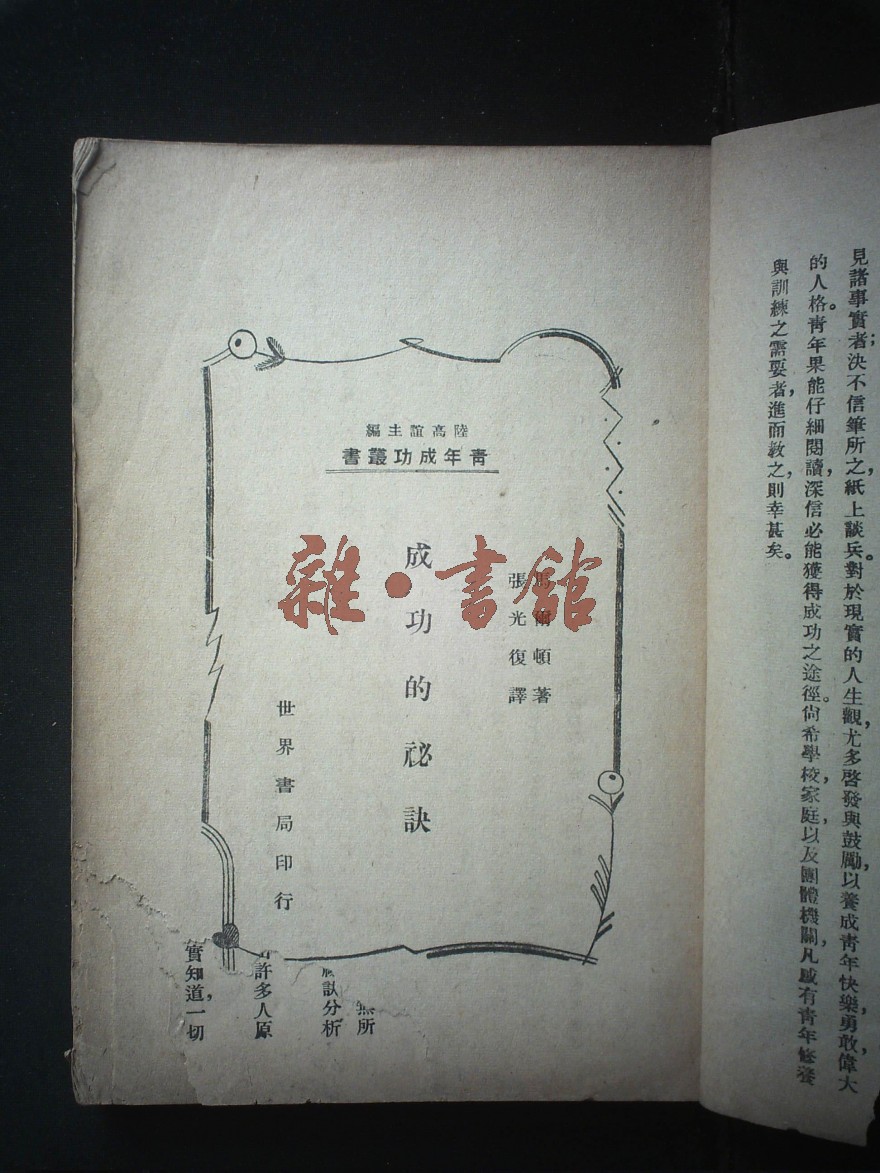 見諸事實者；決不信筆所之，紙上談兵。對於現實的人生觀，尤多啓發與鼓勵，以養成青年快樂，勇敢，偉大
的人格。青年果能仔細閱讀，深信必能獲得成功之途徑。尙希學校，家庭，以及團體機關，凡感有青年修養
與訓練之需要者，進而教之，則幸甚矣。
陸高誼主編
青年成功叢書
馬爾頓著
張光復譯
成功的祕訣
世界書局印行
雜·書館
無所
分析
許多人原
實知道，一切